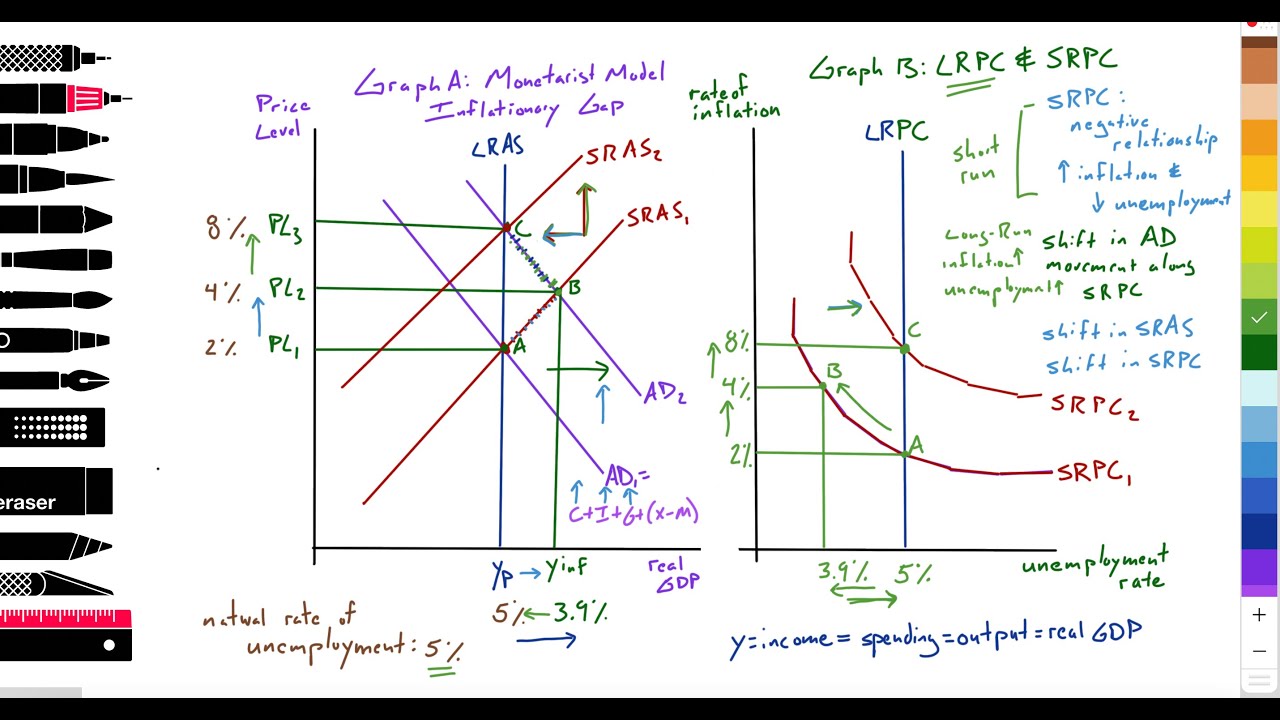 Graph A: Monetarist Model
Inflationary Gap
Price
Level
LRAS
SRAS₂
SRAS₁
8% PL₃
4% PL₂
2% PL₁
C
B
A
AD₂
AD₁=
C+I+G+(x-m)
Yp → Yinf
real
GDP
5% ← 3.9%
natural rate of
unemployment: 5%
eraser
Graph B: LRPC & SRPC
rate of
inflation
LRPC
short
run
SRPC:
negative
relationship
↑ inflation &
↓ unemployment
Long-Run
inflation↑
unemployment↑
shift in AD
movement along
SRPC
shift in SRAS
shift in SRPC
8%
4%
2%
C
B
A
SRPC₂
SRPC₁
3.9% 5%
unemployment
rate
y=income=spending=output=real GDP